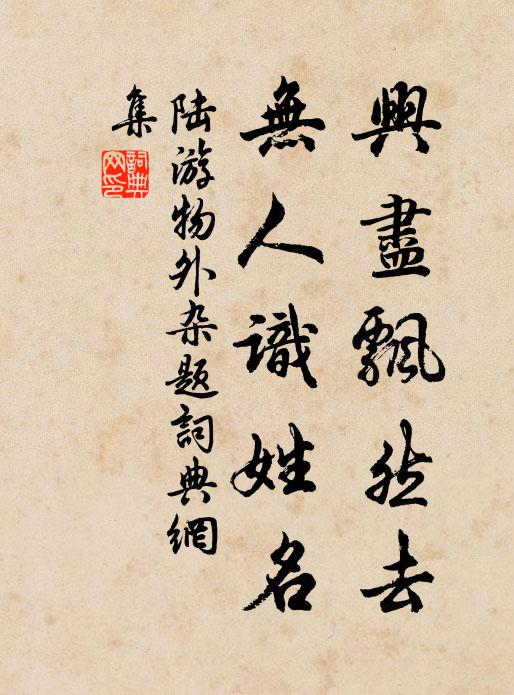 興盡飄然去
無人識姓名
陆游物外杂题詞典網
集
詞典網印